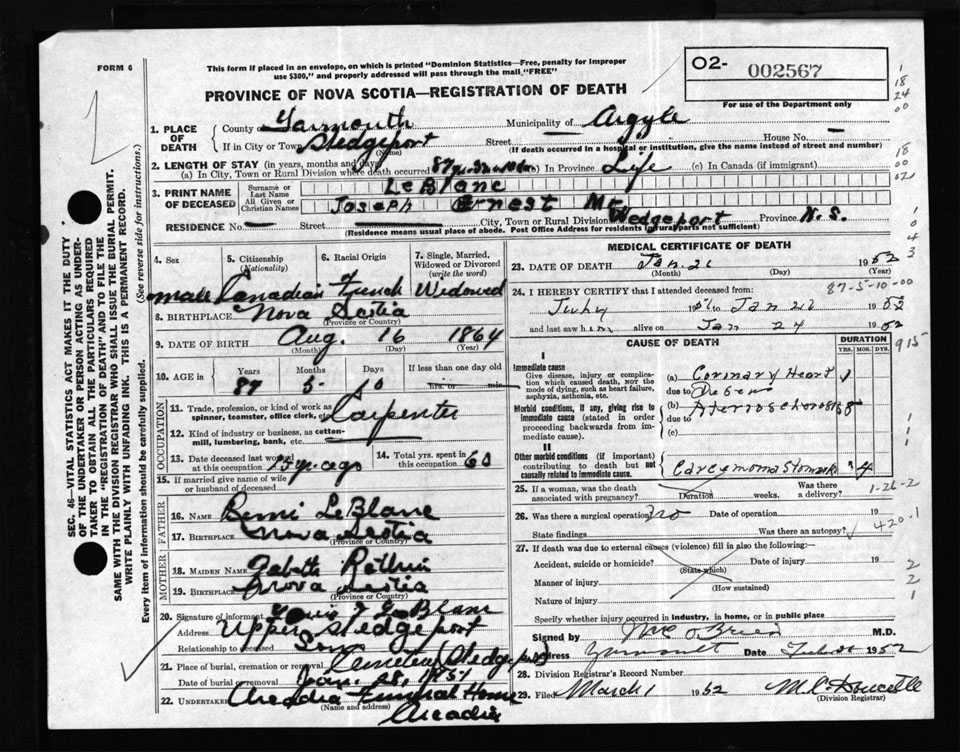 FORM 6
This form if placed in an envelope, on which is printed "Dominion Statistics—Free, penalty for improper
use $300," and properly addressed will pass through the mail "FREE"
PROVINCE OF NOVA SCOTIA—REGISTRATION OF DEATH
O2- 002567
For use of the Department only
1. PLACE OF DEATH
County of Yarmouth Municipality of Argyle
If in City or Town Wedgeport Street House No. —
(Name) (If death occurred in a hospital or institution, give the name instead of street and number)
2. LENGTH OF STAY (in years, months and days)
(a) In City, Town or Rural Division where death occurred 87 (b) In Province Life (c) In Canada (if immigrant)
3. PRINT NAME OF DECEASED
Surname or Last Name LeBlanc
All Given or Christian Names Joseph Ernest Mr
RESIDENCE No. — Street City, Town or Rural Division Wedgeport Province N.S.
(Residence means usual place of abode. Post Office Address for residents in rural parts not sufficient)
4. Sex
5. Citizenship (Nationality)
6. Racial Origin
7. Single, Married, Widowed or Divorced (write the word)
male Canadian French Widowed
8. BIRTHPLACE Nova Scotia
(Province or Country)
9. DATE OF BIRTH Aug. 16 1864
(Month) (Day) (Year)
10. AGE in
Years Months Days If less than one day old
87 5 10 hrs. or min.
OCCUPATION
11. Trade, profession, or kind of work as
spinner, teamster, office clerk, etc. Carpenter
12. Kind of industry or business, as cotton-
mill, lumbering, bank, etc.
13. Date deceased last worked
at this occupation 15 yr. ago
14. Total yrs. spent in
this occupation 60
15. If married give name of wife
or husband of deceased
FATHER
16. NAME Remi LeBlanc
17. BIRTHPLACE Nova Scotia
(Province or Country)
MOTHER
18. MAIDEN NAME
19. BIRTHPLACE Nova Scotia
(Province or Country)
20. Signature of informant LeBlanc
Address Upper Wedgeport
Relationship to deceased Son
21. Place of burial, cremation or removal Cemetery (Wedgeport)
Date of burial Jan. 28, 1957
22. UNDERTAKER Arcadia Funeral Home
(Name and address)
Arcadia
MEDICAL CERTIFICATE OF DEATH
23. DATE OF DEATH Jan. 26 1952
(Month) (Day)
24. I HEREBY CERTIFY that I attended deceased from: 87-5-10-00
July 1951 to Jan 26 1952
and last saw him alive on Jan 24 1952
CAUSE OF DEATH
DURATION
YRS. MOS. DYS.
915
I
Immediate cause
Give disease, injury or complica-
tion which caused death, NOT the
mode of dying, such as heart failure,
asphyxia, asthenia, etc.
(a) Coronary Heart
due to Disease
Morbid conditions, if any, giving rise to
immediate cause (stated in order
proceeding backwards from im-
mediate cause).
(b)
due to
(c)
II
Other morbid conditions (if important)
contributing to death but not
causally related to immediate cause.
Carcynoma Stomach 4
25. If a woman, was the death
associated with pregnancy?
Duration weeks.
Was there
a delivery?
1-26-2
26. Was there a surgical operation? no Date of operation 19
State findings Was there an autopsy?
420.1
27. If death was due to external causes (violence) fill in also the following:—
Accident, suicide or homicide? Date of injury 19
(State which)
Manner of injury
(How sustained)
Nature of injury
Specify whether injury occurred in industry, in home, or in public place
Signed by M.D.
Address Yarmouth Date 1952
28. Division Registrar's Record Number
29. Filed March 1 1952 Doucette
(Division Registrar)
SEC. 46—VITAL STATISTICS ACT MAKES IT THE DUTY
OF THE UNDERTAKER OR PERSON ACTING AS UNDER-
TAKER TO OBTAIN ALL THE PARTICULARS REQUIRED
IN THE "REGISTRATION OF DEATH" AND TO FILE THE
SAME WITH THE DIVISION REGISTRAR WHO SHALL ISSUE THE BURIAL PERMIT.
WRITE PLAINLY WITH UNFADING INK. THIS IS A PERMANENT RECORD.
Every item of information should be carefully supplied. (See reverse side for instructions.)
1
18
24
00
18
00
02